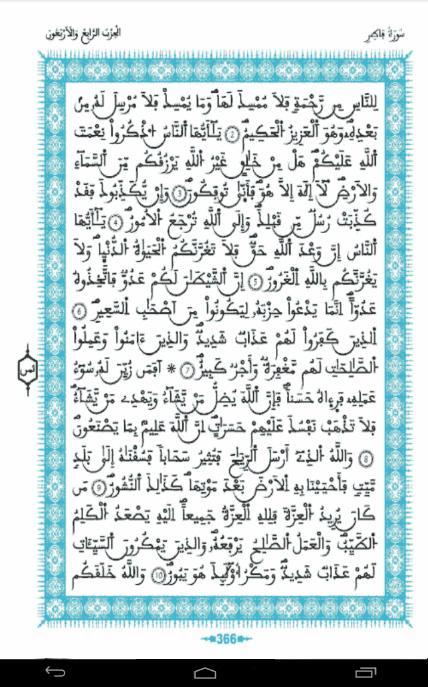 سُورَةُ فَاطِرٍ
الحِزْبُ الرَّابِعُ وَالْأَرْبَعُونَ
لِلنَّاسِ مِن رَّحْمَةٍ فَلَا مُمْسِكَ لَهَا وَمَا يُمْسِكْ فَلَا مُرْسِلَ لَهُۥ مِنۢ
بَعْدِهِۦ وَهُوَ اَ۬لْعَزِيزُ اُ۬لْحَكِيمُ ٢ يَٰٓأَيُّهَا اَ۬لنَّاسُ اُ۟ذْكُرُواْ نِعْمَتَ
اَ۬للَّهِ عَلَيْكُمْ هَلْ مِنْ خَٰلِقٍ غَيْرُ اُ۬للَّهِ يَرْزُقُكُم مِّنَ اَ۬لسَّمَآءِ
وَالَارْضِ لَآ إِلَٰهَ إِلَّا هُوَ فَأَنّ۪يٰ تُوفَكُونَ ٣ وَإِنْ يُّكَذِّبُوكَ فَقَدْ
كُذِّبَتْ رُسُلٌ مِّن قَبْلِكَ وَإِلَى اَ۬للَّهِ تُرْجَعُ اُ۬لُامُورُ ٤ يَٰٓأَيُّهَا
اَ۬لنَّاسُ إِنَّ وَعْدَ اَ۬للَّهِ حَقٌّ فَلَا تَغُرَّنَّكُمُ اُ۬لْحَيَوٰةُ اُ۬لدُّنْي۪ا وَلَا
يَغُرَّنَّكُم بِاللَّهِ اِ۬لْغَرُورُ ٥ إِنَّ اَ۬لشَّيْطَٰنَ لَكُمْ عَدُوٌّ فَاتَّخِذُوهُ
عَدُوًّا اِنَّمَا يَدْعُواْ حِزْبَهُۥ لِيَكُونُواْ مِنَ اَصْحَٰبِ اِ۬لسَّعِيرِ ٦
اَ۬لذِينَ كَفَرُواْ لَهُمْ عَذَابٌ شَدِيدٌ وَالذِينَ ءَامَنُواْ وَعَمِلُواْ
اُ۬لصَّٰلِحَٰتِ لَهُم مَّغْفِرَةٌ وَأَجْرٌ كَبِيرٌ ٧ * اَفَمَن زُيِّنَ لَهُۥ سُوٓءُ
عَمَلِهِۦ فَر۪ء۪اهُ حَسَنًا فَإِنَّ اَ۬للَّهَ يُضِلُّ مَنْ يَّشَآءُ وَيَهْدِے مَنْ يَّشَآءُ
فَلَا تَذْهَبْ نَفْسُكَ عَلَيْهِمْ حَسَرَٰتٍ اِنَّ اَ۬للَّهَ عَلِيمٌۢ بِمَا يَصْنَعُونَ
٨ وَاللَّهُ اُ۬لذِےٓ أَرْسَلَ اَ۬لرِّيَٰحَ فَتُثِيرُ سَحَابًا فَسُقْنَٰهُ إِلَىٰ بَلَدٍ
مَّيِّتٍ فَأَحْيَيْنَا بِهِ اِ۬لَارْضَ بَعْدَ مَوْتِهَا كَذَٰلِكَ اَ۬لنُّشُورُ ٩ مَن
كَانَ يُرِيدُ اُ۬لْعِزَّةَ فَلِلهِ اِ۬لْعِزَّةُ جَمِيعًا اِلَيْهِ يَصْعَدُ اُ۬لْكَلِمُ
اُ۬لطَّيِّبُ وَالْعَمَلُ اُ۬لصَّٰلِحُ يَرْفَعُهُۥ وَالذِينَ يَمْكُرُونَ اَ۬لسَّيِّـَٔاتِ
لَهُمْ عَذَابٌ شَدِيدٌ وَمَكْرُ أُوْلَٰٓئِكَ هُوَ يَبُورُ ١٠ وَاللَّهُ خَلَقَكُم
ثمن
366